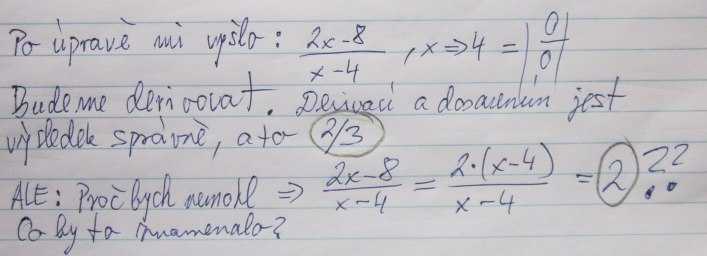 Po úpravě mi vyšlo: \frac{2x-8}{x-4}, x⇒4 = |\frac{0}{0}|
Budeme derivovat. Derivací a dosazením jest
výsledek správně, a to 2/3
ALE: Proč bych nemohl ⇒ \frac{2x-8}{x-4} = \frac{2·(x-4)}{x-4} = 2 ??
Co by to znamenalo?